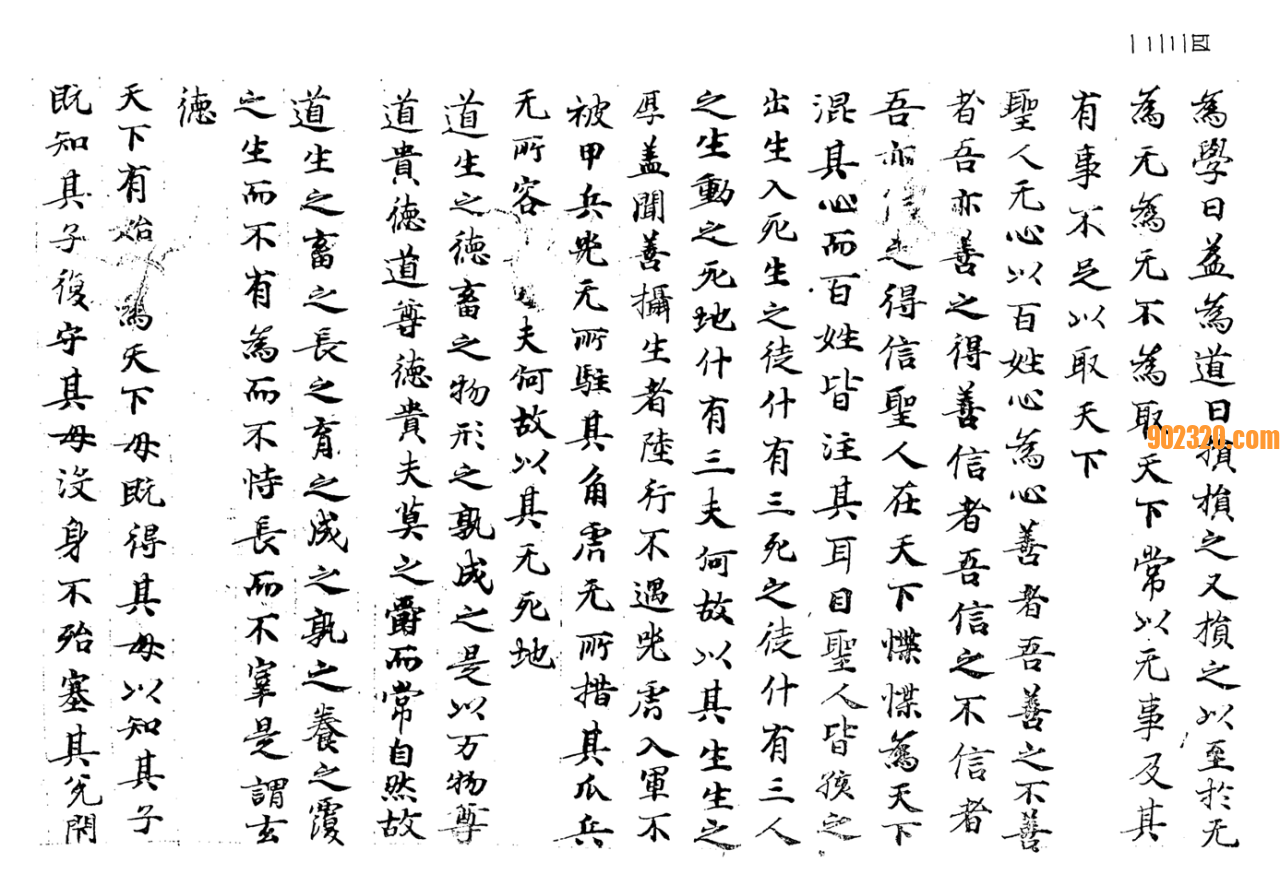 為學日益為道日損損之又損之以至於无
為无為无不為取天下常以无事及其
有事不足以取天下
聖人无心以百姓心為心善者吾善之不善
者吾亦善之得善信者吾信之不信者
吾亦信之得信聖人在天下惵惵為天下
混其心而百姓皆注其耳目聖人皆孩之
出生入死生之徒什有三死之徒什有三人
之生動之死地什有三夫何故以其生生之
厚盖聞善攝生者陸行不遇兕虎入軍不
被甲兵兕无所駐其角虎无所措其爪兵
无所容夫何故以其无死地
道生之德畜之物形之孰成之是以万物尊
道貴德道尊德貴夫莫之爵而常自然故
道生之畜之長之育之成之孰之養之覆
之生而不有為而不恃長而不宰是謂玄
德
天下有始為天下母既得其母以知其子
既知其子復守其母没身不殆塞其兊閇
902320.com